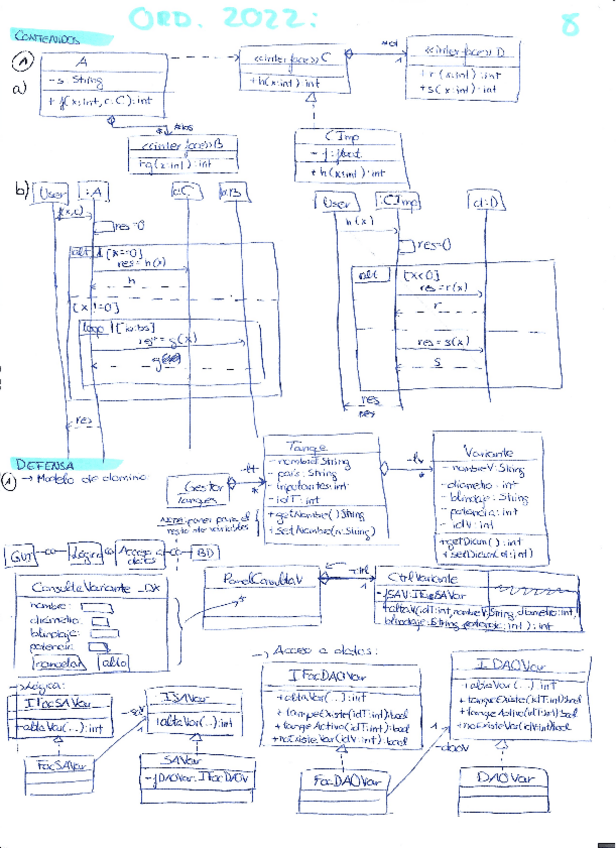 ORD. 2022:
8
CONTENIDOS
1
a)
A
- s: String
+ f(x:int, c:C): int
<<interface>> C
+ h(x:int): int
1
<<interface>> D
+ r(x:int): int
+ s(x:int): int
<<interface>> B
+g(x:int): int
CImp
+ h(x:int): int
b)
User
:A
c:C
b:B
res=0
alt
[x==0]
res=h(x)
h
[x!=0]
loop
res+=g(x)
res
User
:CImp
d:D
h(x)
res=0
alt
[x<0]
res=r(x)
r
res=s(x)
s
res
res
DEFENSA
1
→ Modelo de dominio
Gestor
Tanques
*
Tanque
- nombre: String
- país: String
- idT: int
+ getNombre() String
+ setNombre(n:String)
*
Variante
- nombreV: String
- diametro: int
- blindaje: String
- potencia: int
- idV: int
+getDiam(): int
+setDiam(d:int)
NOTA: poner para el
resto de variables
GUI
Lógica
Acceso a
datos
BD
ConsultaVariante_DX
nombre:
diámetro:
blindaje:
potencia:
cancelar
alta
PanelConsultaV
CtrlVariante
-fSAV: IFacSAVar
→ Lógica:
IFacSAVar
+altaVar(..): int
FacSAVar
ISAVar
+altaVar(..): int
SAVar
-fDAOVar: IFacDAOV
→ Acceso a datos:
IFacDAOVar
+altaVar(..): int
+ tanqueExiste(idT:int):bool
+ tanqueActivo(idT:int):bool
+ noExisteVar(idV:int):bool
FacDAOVar
1
-daoV
IDAOVar
+altaVar(..): int
+ tanqueExiste(idT:int):bool
+ tanqueActivo(idT:int):bool
+ noExisteVar(idV:int):bool
DAOVar